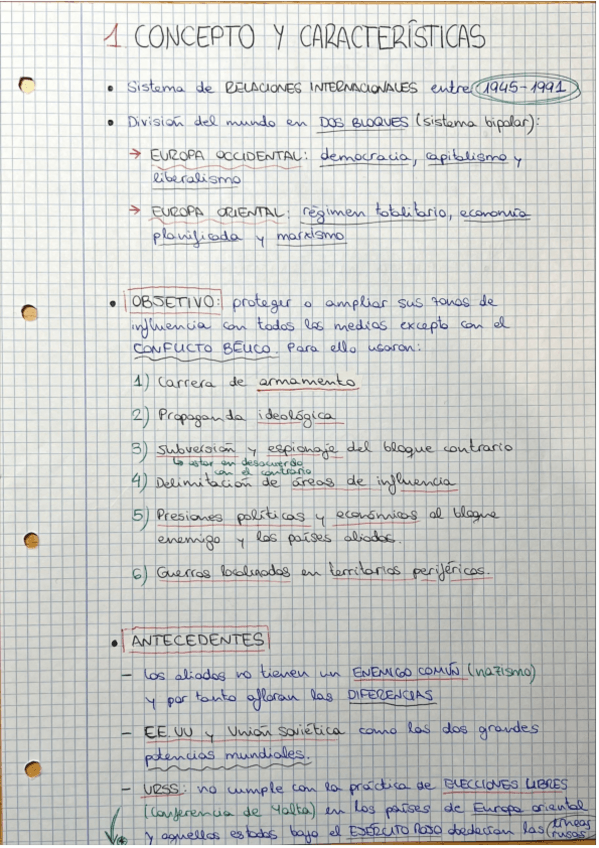 1 CONCEPTO Y CARACTERÍSTICAS
• Sistema de RELACIONES INTERNACIONALES entre 1945-1991
• División del mundo en DOS BLOQUES (sistema bipolar):
→ EUROPA OCCIDENTAL: democracia, capitalismo y
liberalismo
→ EUROPA ORIENTAL: régimen totalitario, economía
planificada y marxismo
• OBJETIVO: proteger o ampliar sus zonas de
influencia con todos los medios excepto con el
CONFLICTO BÉLICO. Para ello usaron:
1) Carrera de armamento
2) Propaganda ideológica
3) Subversión y espionaje del bloque contrario
↳ estar en desacuerdo
con el contrario
4) Delimitación de áreas de influencia
5) Presiones políticas y económicas al bloque
enemigo y los países aliados.
6) Guerras localizadas en territorios periféricos.
• ANTECEDENTES
– Los aliados no tienen un ENEMIGO COMÚN (nazismo)
y por tanto afloran las DIFERENCIAS
– EE.UU y Unión Soviética como las dos grandes
potencias mundiales.
– URSS: no cumple con la práctica de ELECCIONES LIBRES
(Conferencia de Yalta) en los países de Europa oriental
y aquellos estados bajo el EJÉRCITO ROJO obedecían las líneas
rusas